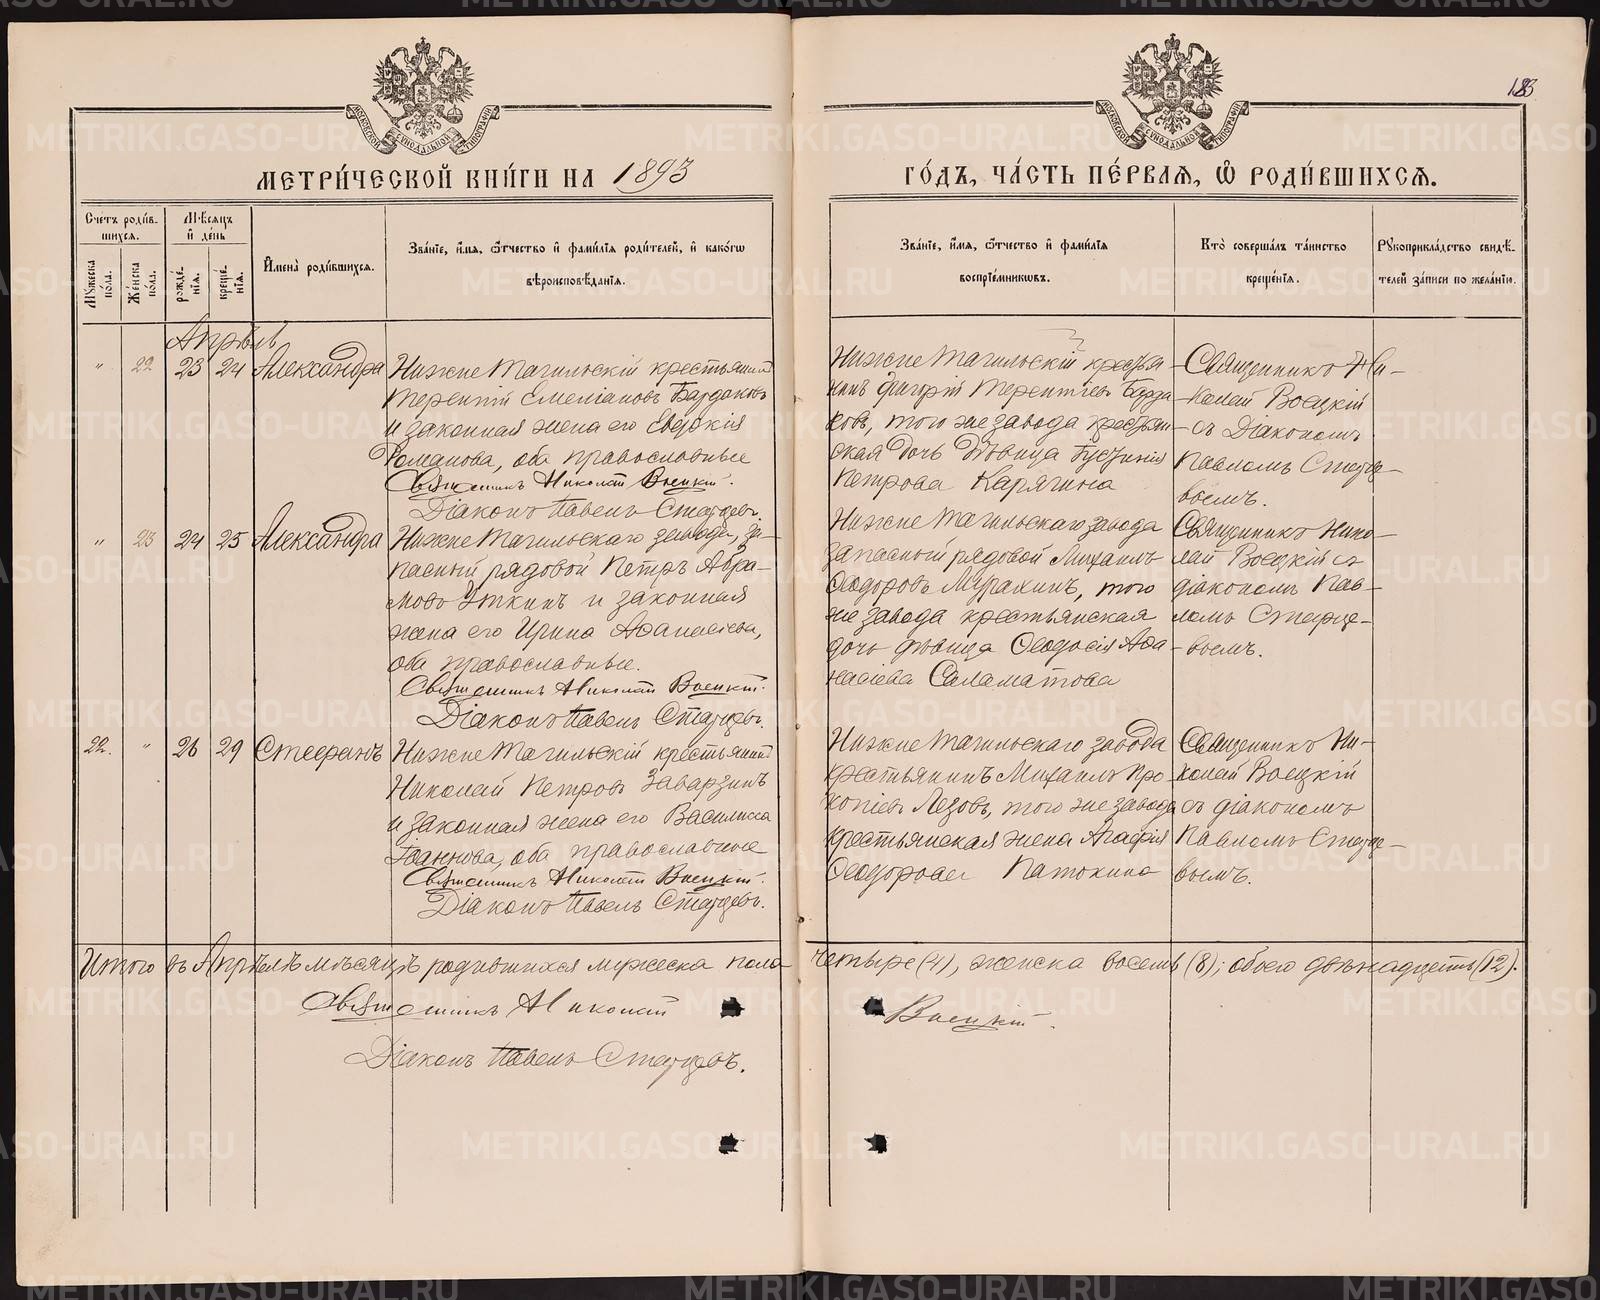 МОСКОВСКОЙ СѴНОДАЛЬНОЙ ТИПОГРАФІИ
МОСКОВСКОЙ СѴНОДАЛЬНОЙ ТИПОГРАФІИ
183
МЕТРИ́ЧЕСКОЙ КНИ́ГИ НА 1893
ГО́ДЪ, ЧА́СТЬ ПЕ́РВАѦ, Ѽ РОДИ́ВШИХСѦ.
Счетъ роди́в-
шихсѧ.
Мꙋжеска по́ла.
Же́нска по́ла.
Мѣ́сѧцъ и҆ де́нь
рожде́-нїѧ.
креще́-нїѧ.
И҆мена̀ роди́вшихсѧ.
Зва́нїе, и҆́мѧ, ѻ҆́тчество и҆ фами́лїѧ роди́телей, и҆ како́гѡ
вѣроисповѣ́данїѧ.
Зва́нїе, и҆́мѧ, ѻ҆́тчество и҆ фами́лїѧ
воспрїе́мникѡвъ.
Кто̀ соверша́лъ та́инство
креще́нїѧ.
Рꙋкоприкла́дство свидѣ́-
телей за́писи по жела́нїю.
Апрѣль
" 22 23 24 Александра
Нижне Тагильскій крестьянинъ
Терентій Емеліановъ Бардаковъ
и законная жена его Евдокія
Романова, оба православные
Священникъ Николай Воецкій.
Діаконъ Павелъ Старцевъ.
Нижне Тагильскій крестья-
нинъ Григорій Терентіевъ Барда
ковъ, того же завода крестьян-
ская дочь дѣвица Евгенія
Петрова Карягина
Священникъ Ни-
колай Воецкій
съ Діакономъ
Павломъ Старце-
вымъ.
" 23 24 25 Александра
Нижне Тагильскаго завода, за-
пасный рядовой Петръ Абра-
мовъ Уткинъ и законная
жена его Ирина Аѳанасіева,
оба православные.
Священникъ Николай Воецкій.
Діаконъ Павелъ Старцевъ.
Нижне Тагильскаго завода
запасный рядовой Михаилъ
Ѳеодоровъ Мурахинъ, того
же завода крестьянская
дочь дѣвица Ѳеодосія Аѳа-
насіева Саламатова
Священникъ Нико-
лай Воецкій съ
діакономъ Пав-
ломъ Старце-
вымъ.
22. " 26 29 Стефанъ
Нижне Тагильскій крестьянинъ
Николай Петровъ Заварзинъ
и законная жена его Василисса
Іоаннова, оба православные
Священникъ Николай Воецкій.
Діаконъ Павелъ Старцевъ.
Нижне Тагильскаго завода
крестьянинъ Михаилъ Про
копіевъ Лезовъ, того же завода
крестьянская жена Агафія
Ѳеодорова Патокина
Священникъ Ни-
колай Воецкій
съ діакономъ
Павломъ Старце-
вымъ.
Итого въ Апрѣлѣ мѣсяцѣ родившихся мужеска пола четыре (4), женска восемь (8); обоего двѣнадцать (12).
Священникъ Николай Воецкій.
Діаконъ Павелъ Старцевъ.
METRIKI.GASO-URAL.RU